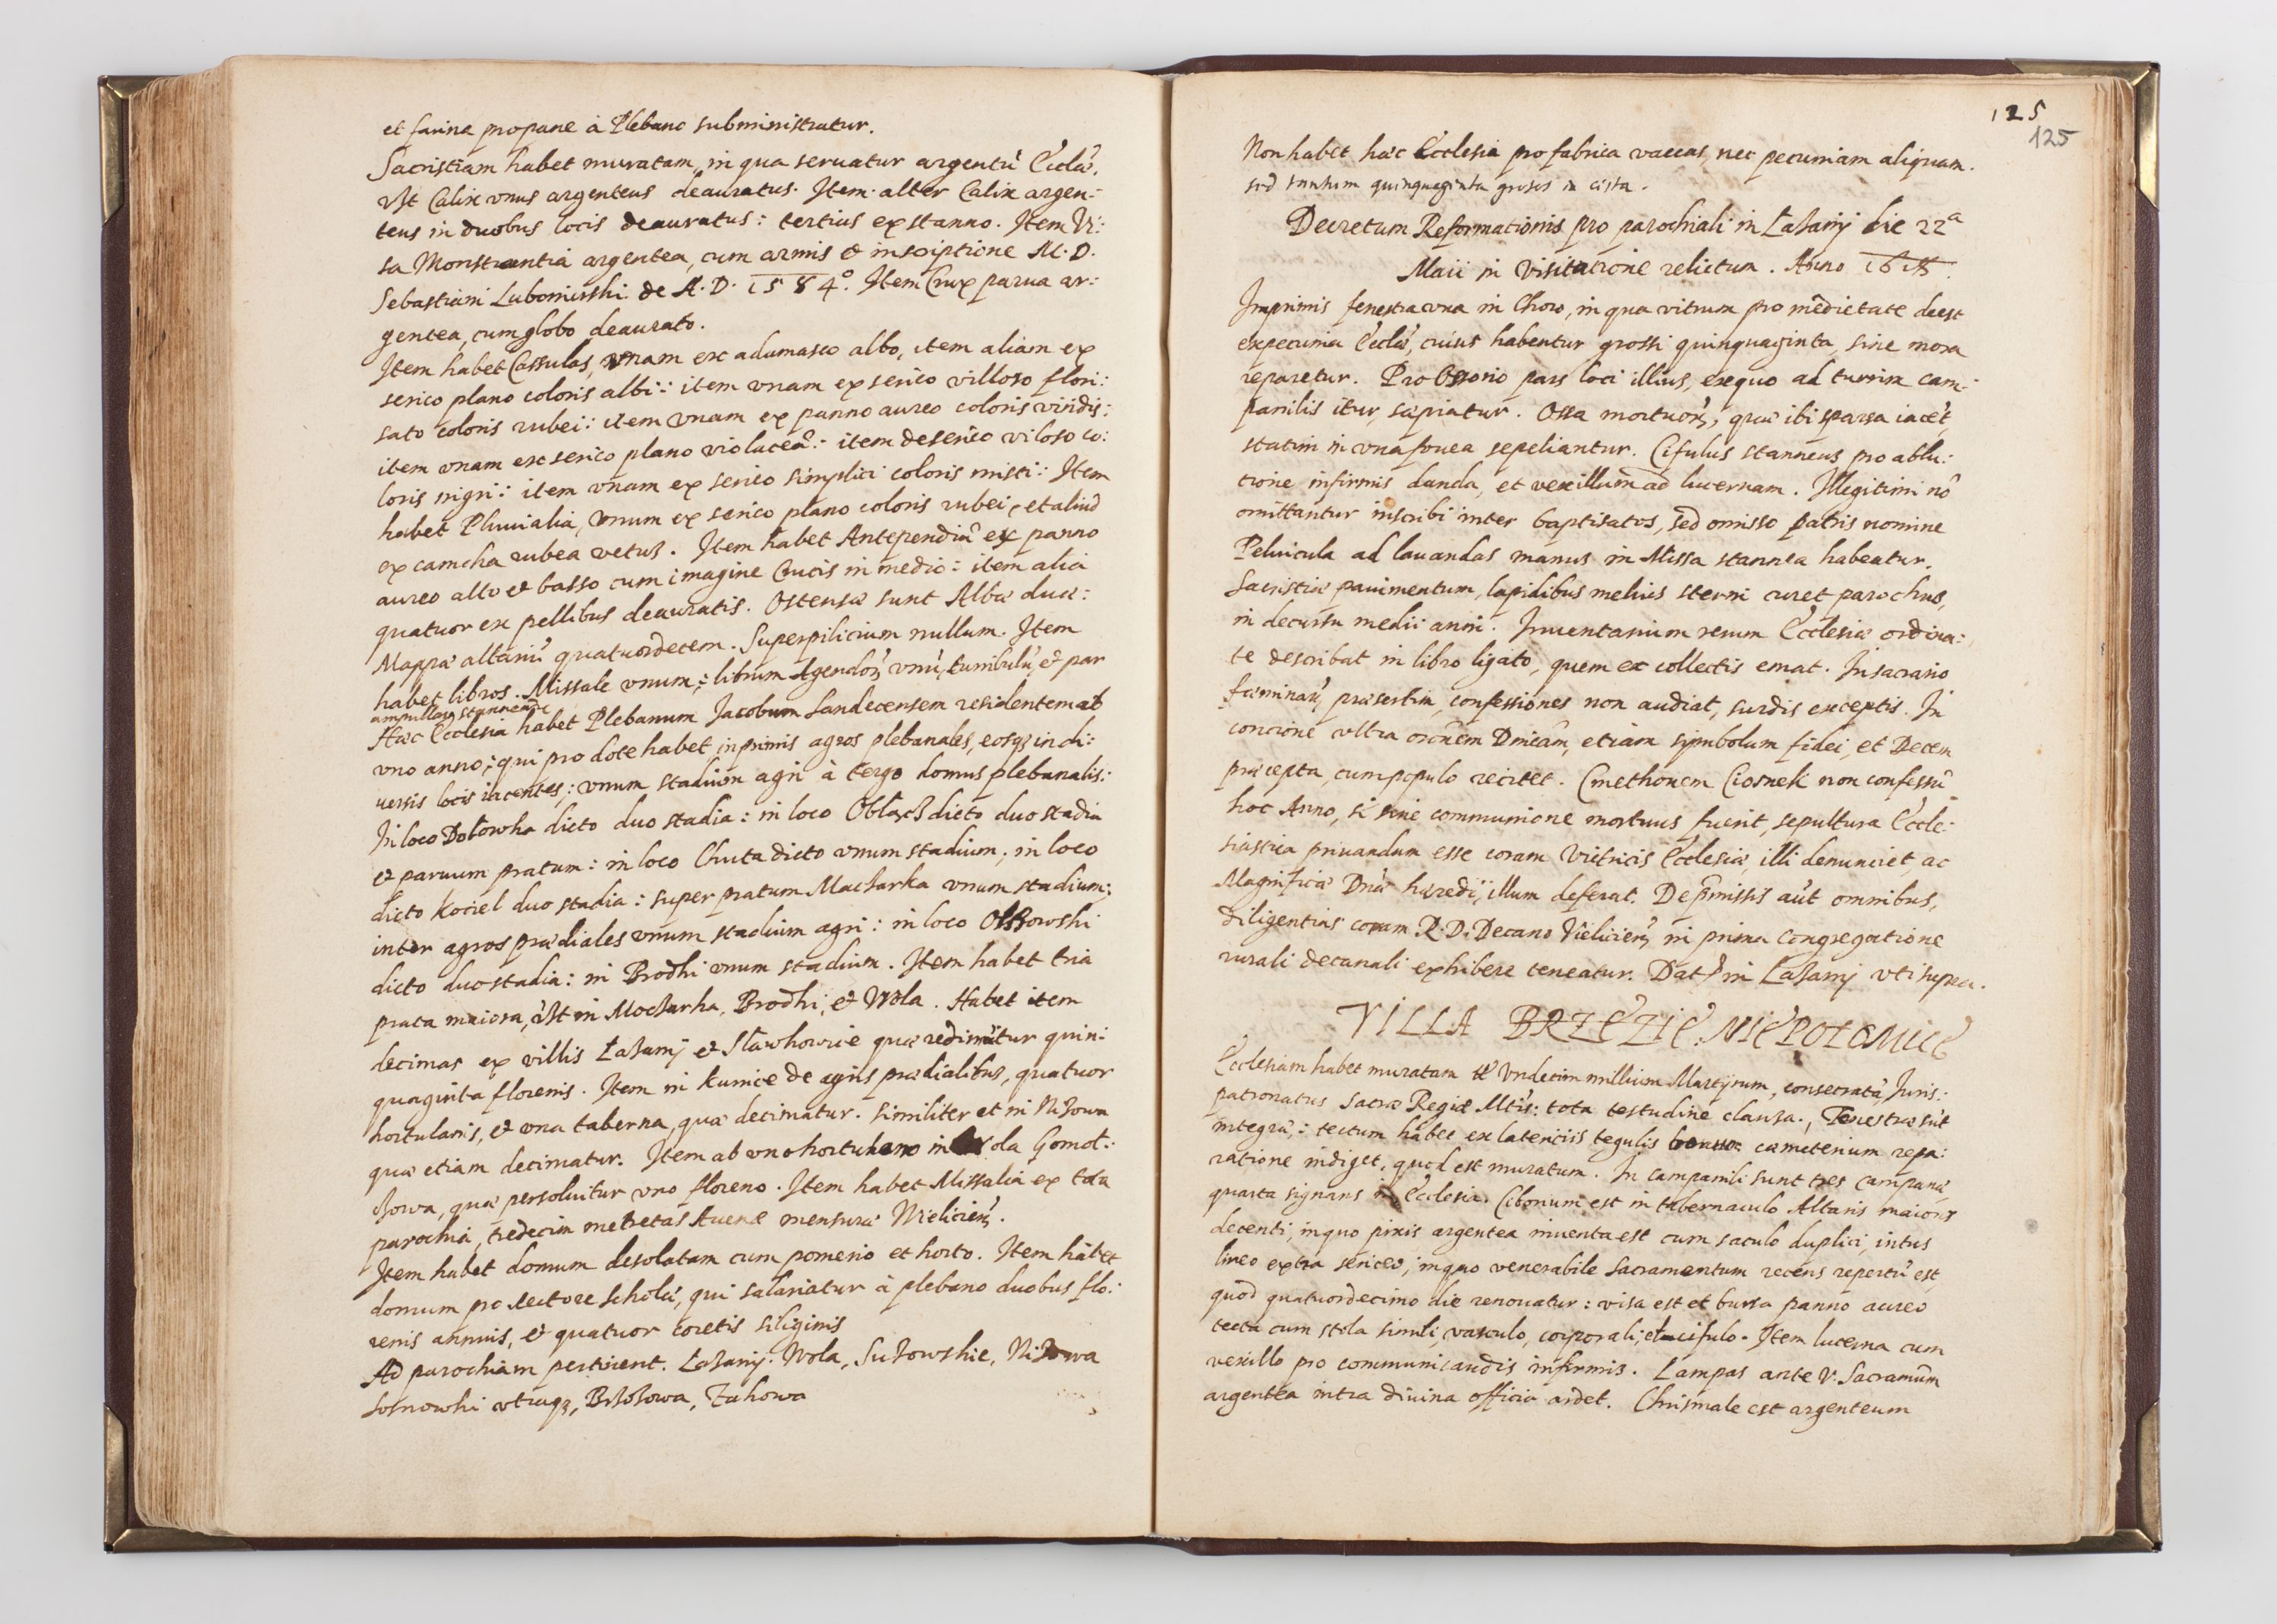 et farinæ pro pane à Plebano subministratur.
Sacristiam habet muratam, in qua seruatur argentũ Eccłæ,
vt Calix vnus argenteus deauratus. Item alter Calix argen-
teus in duobus locis deauratus: tertius ex stanno. Item Vi:
sa Monstrantia argentea, cum armis et inscriptione M. D.
Sebastiani Lubomirski de A. D. 1584º. Item Crux parua ar:
gentea, cum globo deaurato.
Item habet Cassulas, vnam ex adamasco albo, item aliam ex
serico plano coloris albi: item vnam ex serico villoso flori:
sato coloris rubei: item vnam ex panno aureo coloris viridis:
item vnam ex serico plano violaceã: item de serico viloso co:
loris nigri: item vnam ex serico simplici coloris misti: Item
habet Pluuialia, vnum ex serico plano coloris rubei, et aliud
ex camcha rubea vetus. Item habet Antependiũ ex panno
aureo alto et basso cum imagine Crucis in medio: item alia
quatuor ex pellibus deauratis. Ostensæ sunt Albæ duæ:
Mappæ altariũ quatuordecem. Superpilicium nullum. Item
habet libros. Missale vnum; librum Agendoꝝ vnũ, turribulũ, et par
ampullaꝝ stannearũ
Hæc Ecclesia habet Plebanum Jacobum Sandecensem residentem ab
vno anno; qui pro dote habet inprimis agros plebanales, eosqꝫ in di:
uersis locis iacentes; vnum stadium agri à tergo domus plebanalis:
In loco Dołowka dicto duo stadia: in loco Obłącz dicto duo stadia
et paruum pratum: in loco Chuta dicto vnum stadium; in loco
dicto Kociel duo stadia: super pratum Moczarka vnum stadium;
inter agros prædiales vnum stadium agri: in loco Olszowski
dicto duo stadia: in Brodki vnum stadium. Item habet tria
prata maiora, vt in Moczarka, Brodki, et Wola. Habet item
decimas ex villis Łazany et Sławkowice quæ redimũtur quin:
quaginta florenis. Item in Kunice de agris prædialibus, quatuor
hortulanis, et vna taberna, quæ decimatur. similiter et in Nizowa
quæ etiam decimatur. Item ab vno hortulano in Wola Gomoł:
zowa, quæ persoluitur vno floreno. Item habet Missalia ex tota
parochia, tredecim metretas Auenæ mensuræ Wielicien̄.
Item habet domum desolatam cum pomerio et horto. Item habet
domum pro rectore scholæ, qui salariatur à plebano duobus flo:
renis annuis, et quatuor coretis siliginis
Ad parochiam pertinent. Łazany. Wola, Suzowskie, Nizowa
Sosnowki vtraqꝫ, Brzozowa, Zakowa
125
125
Non habet hæc Ecclesia pro fabrica vaccas, nec pecuniam aliquam.
sed tantum quinquaginta grosos in cista.
Decretum Reformationis pro parochiali in Łazany die 22ª
Maii in Visitatione relictum. Anno
Imprimis fenestra vna in Choro, in qua vitrum pro medietate deest
ex pecunia Eccłæ, cuius habentur grossi quinquaginta, sine mora
reparetur. Pro Ossorio pars loci illius, ex quo ad turrim cam-
panilis itur, sæpiatur. Ossa mortuoꝝ, quæ ibi sparsa iacēt,
statim in vna fouea sepeliantur. Cifulus stanneus pro ablu:
tione infirmis danda, et vexillum ad lucernam. Illegitimi nõ
omittantur inscribi inter baptisatos, sed omisso patris nomine
Peluicula ad lauandas manus in Missa stannea habeatur.
Sacristiæ pauimentum, lapidibus melius sterni curet parochus,
in decursu medii anni. Inuentarium rerum Ecclesiæ ordina:
te describat in libro ligato, quem ex collectis emat. In sacrario
fœminaꝝ præsertim, confessiones non audiat, surdis exceptis. In
concione vltra orõnem Dnicam, etiam symbolum fidei, et Decem
præcepta, cum populo recitet. Cmethonem Ciosnek non confessũ
hoc Anno, si sine communione mortuus fuerit, sepultura Eccle:
siastica priuandum esse coram Vitricis Ecclesiæ, illi denunciet, ac
Magnificæ Dnæ hæredi, illum deferat. De p̃missis aũt omnibus,
diligentias coram R. D. Decano Vieliciēn in prima congregatione
rurali decanali exhibere teneatur. Dat̃ in Łazany vti supra.
VILLA BRZEZIE NIEPOŁOMICE
Ecclesiam habet muratam tt Vndecim millium Martyrum, consecratã, Juris:
patronatus Sacræ Regiæ Mtis: tota testudine clausa., Fenestræ sũt
integræ,: tectum habet ex latericiis tegulis cæmeterium repa:
ratione indiget, quod est muratum. In campanili sunt tres campanæ,
quarta signans in Ecclesia. Ciborium est in tabernaculo Altaris maioris
decenti, in quo pixis argentea inuenta est cum saculo duplici, intus
lineo extra sericeo, in quo venerabile Sacramentum recens repertũ est,
quod quatuordecimo die renouatur: visa est et bursa panno aureo
tecta cum stola simili, vasculo, corporali, et cifulo. Item lucerna cum
vexillo pro communicandis infirmis. Lampas ante V. Sacramũm
argentea intra diuina officia ardet. Chrismale est argenteum